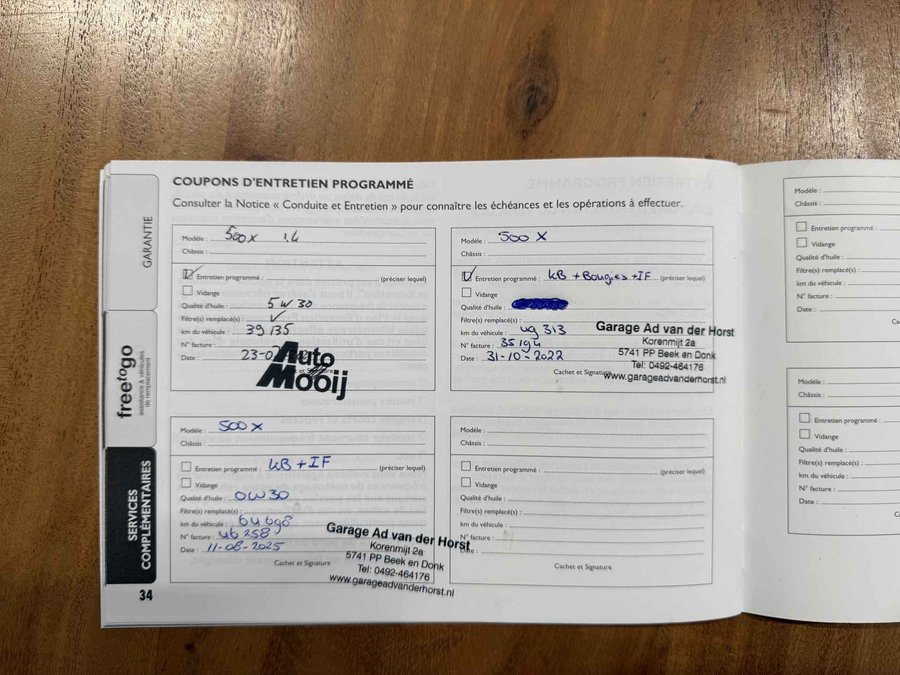 COUPONS D'ENTRETIEN PROGRAMMÉ
Consulter la Notice « Conduite et Entretien » pour connaître les échéances et les opérations à effectuer.
GARANTIE
freetogo
assistance & véhicules
de remplacement
SERVICES
COMPLÉMENTAIRES
34
Modèle : 500x 1.4
Châssis :
Entretien programmé : (préciser lequel)
Vidange
Qualité d'huile : 5w30
Filtre(s) remplacé(s) : ✓
km du véhicule : 39135
N° facture :
Date : 23-0
Cachet et Signature
Auto
Mooij
Modèle : 500 X
Châssis :
Entretien programmé : KB + Bougies + IF (préciser lequel)
Vidange
Qualité d'huile :
Filtre(s) remplacé(s) :
km du véhicule : 313
N° facture :
Date : 31-10-2022
Cachet et Signature
Garage Ad van der Horst
Korenmijt 2a
5741 PP Beek en Donk
Tel: 0492-464176
www.garageadvanderhorst.nl
Modèle : 500 X
Châssis :
Entretien programmé : KB + IF (préciser lequel)
Vidange
Qualité d'huile : 0W30
Filtre(s) remplacé(s) :
km du véhicule :
N° facture :
Date : 11-08-2025
Cachet et Signature
Garage Ad van der Horst
Korenmijt 2a
5741 PP Beek en Donk
Tel: 0492-464176
www.garageadvanderhorst.nl
Modèle :
Châssis :
Entretien programmé : (préciser lequel)
Vidange
Qualité d'huile :
Filtre(s) remplacé(s) :
km du véhicule :
N° facture :
Date :
Cachet et Signature
Modèle :
Châssis :
Entretien programmé :
Vidange
Qualité d'huile :
Filtre(s) remplacé(s) :
km du véhicule :
N° facture :
Date :
Modèle :
Châssis :
Entretien programmé :
Vidange
Qualité d'huile :
Filtre(s) remplacé(s) :
km du véhicule :
N° facture :
Date :